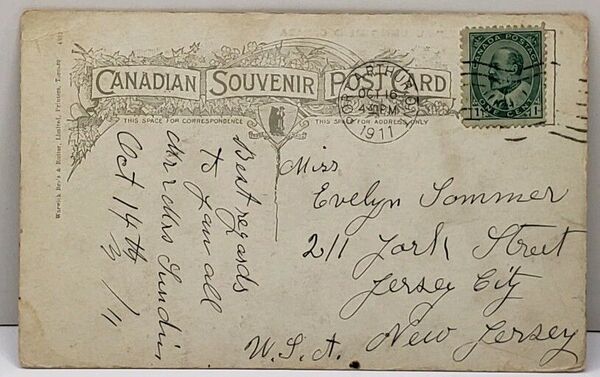 CANADIAN SOUVENIR POST CARD
THIS SPACE FOR CORRESPONDENCE
THIS SPACE FOR ADDRESS ONLY
Warwick Bro's & Rutter, Limited, Printers, Toronto
PORT ARTHUR ONT
OCT 16
PM
1911
CANADA POSTAGE
ONE CENT
1 1
Best regards
to you all
Mr & Mrs
Oct 14th
/11
Miss
Evelyn Sommer
211 York Street
Jersey City
New Jersey
U.S.A.